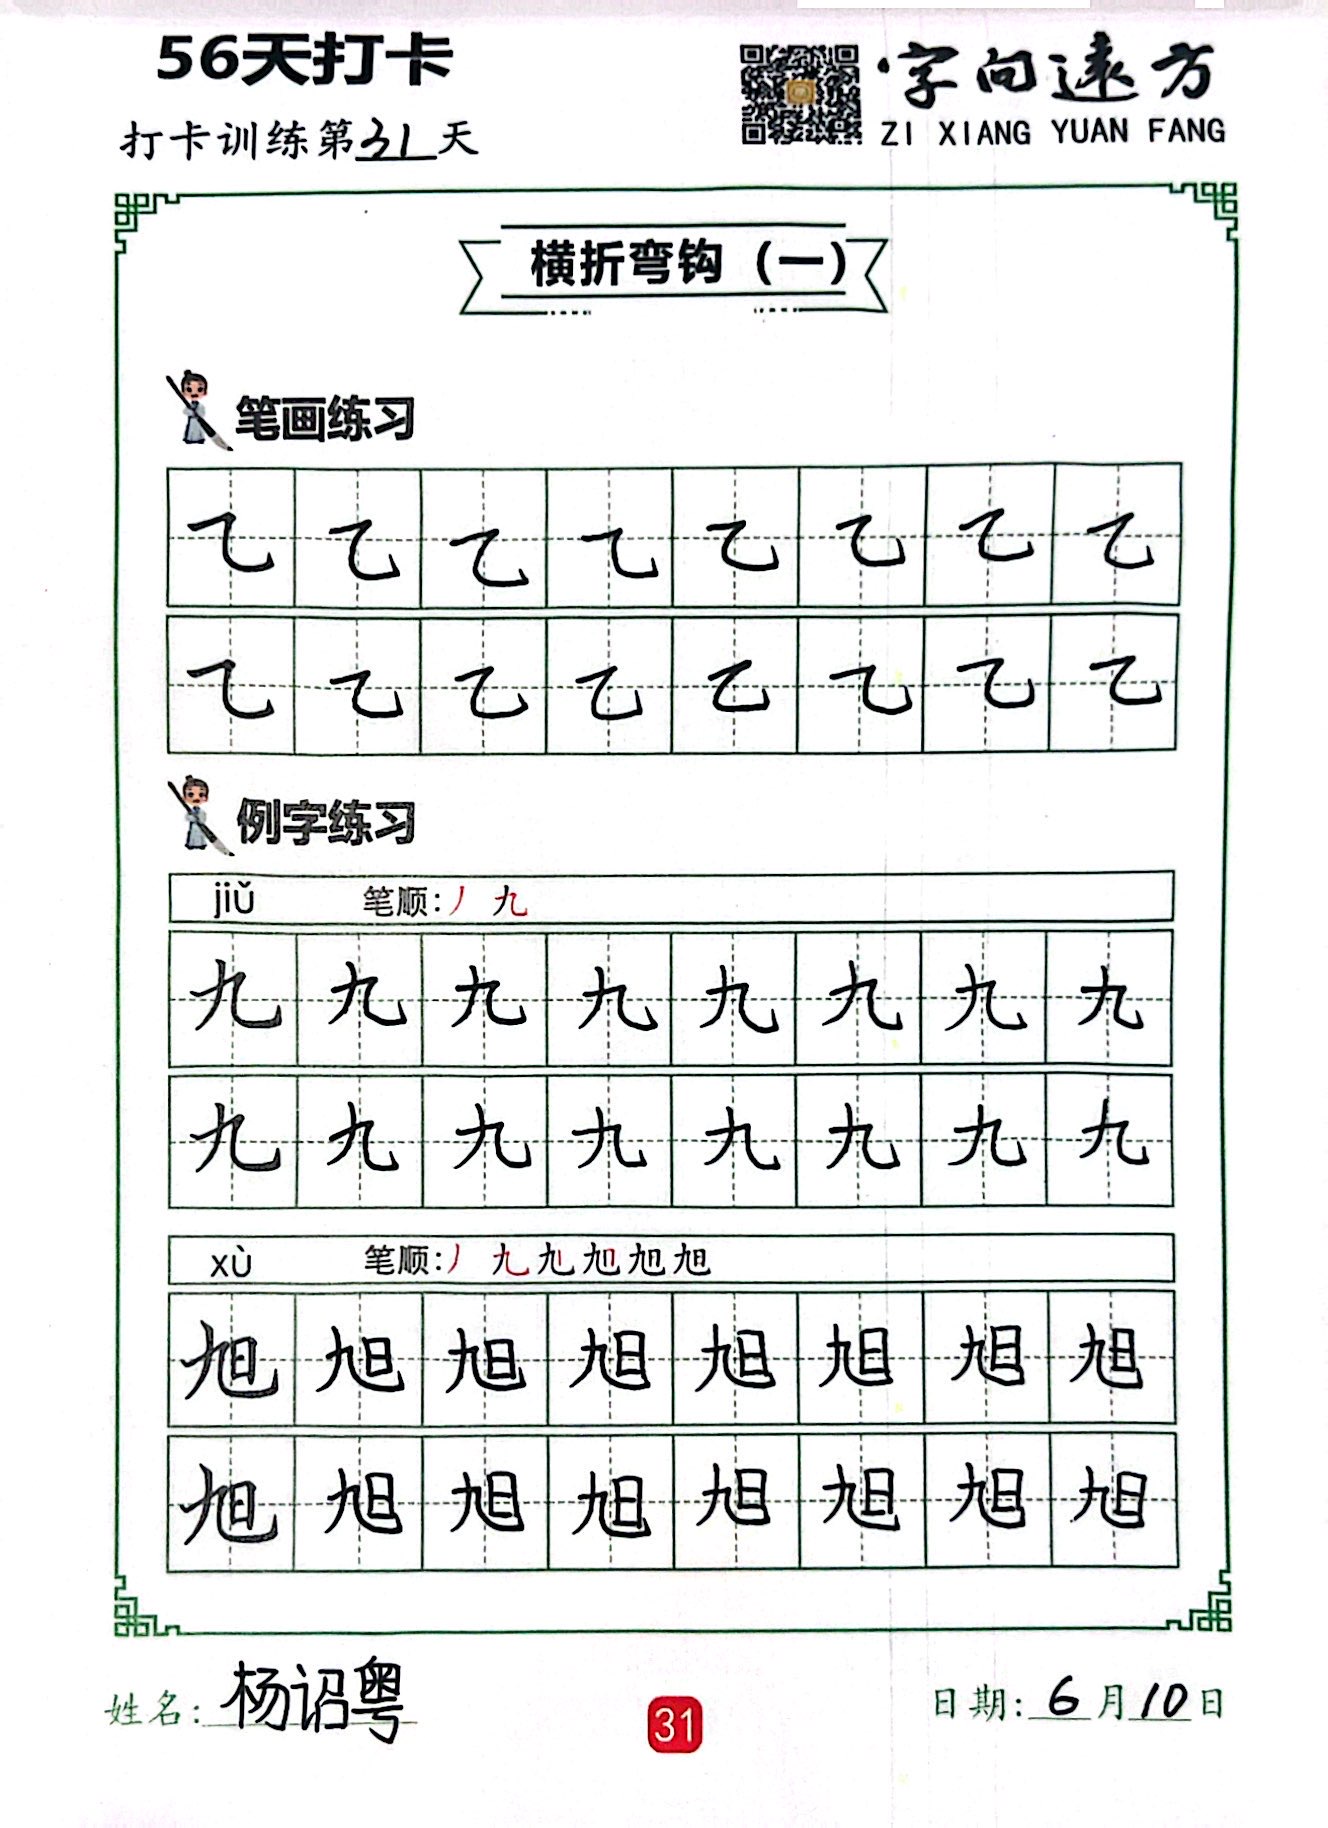 56天打卡
字向远方
ZI XIANG YUAN FANG
打卡训练第31天
横折弯钩（一）
笔画练习
乙 乙 乙 乙 乙 乙 乙 乙
乙 乙 乙 乙 乙 乙 乙 乙
例字练习
jiǔ 笔顺:丿 九
九 九 九 九 九 九 九 九
九 九 九 九 九 九 九 九
xù 笔顺:丿 九 旭 旭 旭 旭
旭 旭 旭 旭 旭 旭 旭 旭
旭 旭 旭 旭 旭 旭 旭 旭
姓名:杨诏粤
31
日期:6月10日